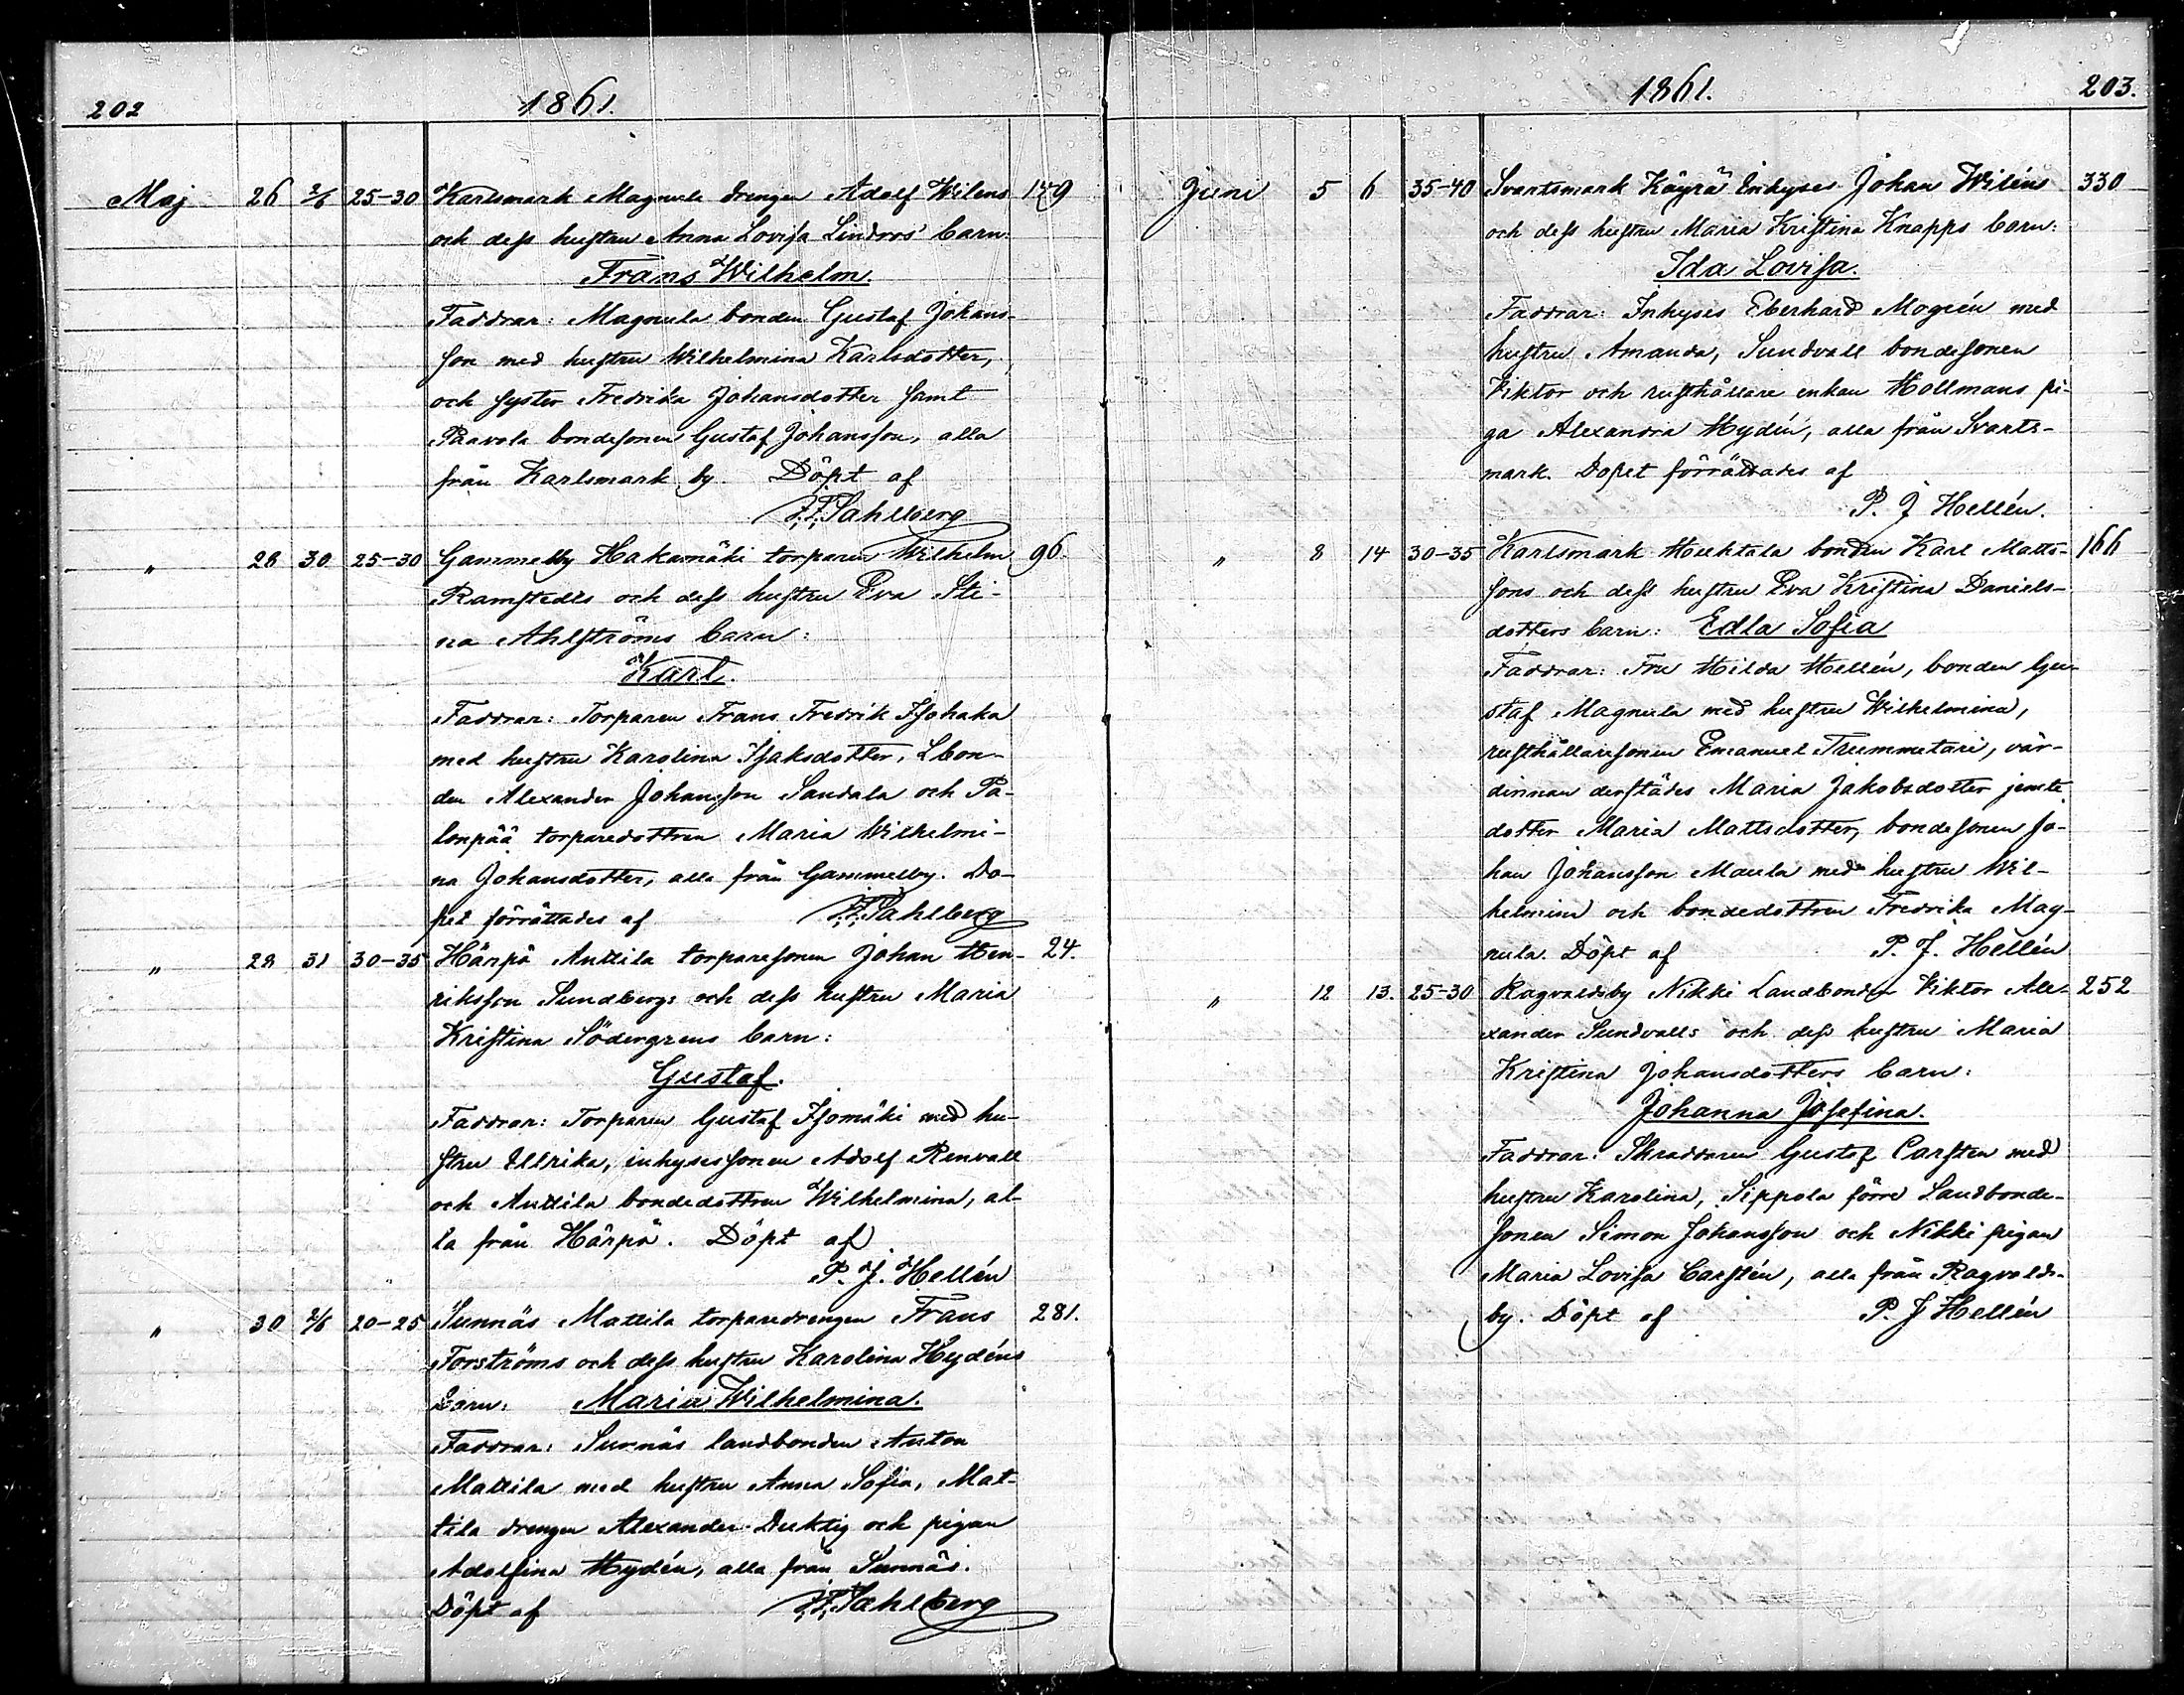 202
1861.
Maj 26 2/6 25-30 Karlsmark Magnula drengen Adolf Wilens 149
och dess hustru Anna Lovisa Lindros' barn:
Frans Wilhelm.
Faddrar: Magnula bonden Gustaf Johans-
son med hustru Wilhelmina Karlsdotter,
och syster Fredrika Johansdotter samt
Paavola bondesonen Gustaf Johansson, alla
från Karlsmark by. Döpt af
F.F. Sahlberg
" 28 30 25-30 Gammelby Hakamäki torparen Wilhelm 96.
Ramstedts och dess hustru Eva Sti-
na Ahlströms barn:
Karl.
Faddrar: Torparen Frans Fredrik Isohaka
med hustru Karolina Isaksdotter, Lbon-
den Alexander Johansson Sandala och Pa-
lonpää torparedottren Maria Wilhelmi-
na Johansdotter, alla från Gammelby. Do-
pet förrättades af F.F. Sahlberg
" 28 31 30-35 Härpö Anttila torparesonen Johan Hen- 24.
riksson Sundbergs och dess hustru Maria
Kristina Södergrens barn:
Gustaf.
Faddrar: Torparen Gustaf Isomäki med hu-
stru Ullrika, inhysessonen Adolf Renvall
och Anttila bondedottren Wilhelmina, al-
la från Härpö. Döpt af
P. J. Hellén
" 30 2/6 20-25 Sunnäs Mattila torparedrengen Frans 281.
Forströms och dess hustru Karolina Hydéns
barn: Maria Wilhelmina.
Faddrar: Sunnäs landbonden Anton
Mattila med hustru Anna Sofia, Mat-
tila drengen Alexander Duktig och pigan
Adolfina Hydén, alla från Sunnäs.
Döpt af F.F. Sahlberg
1861.
203.
Juni 5 6 35-40 Svartsmark Käyrä Inhyses Johan Wiléns 330
och dess hustru Maria Kristina Knapps barn:
Ida Lovisa.
Faddrar: Inhyses Eberhard Mogrén med
hustru Amanda, Sundvall bondesonen
Viktor och rusthållare enkan Hollmans pi-
ga Alexandra Hydén, alla från Svarts-
mark. Dopet förrättades af
P. J Hellén.
" 8 14 30-35 Karlsmark Huhtala bonden Karl Matts- 166
sons och dess hustru Eva Kristina Daniels-
dotters barn: Edla Sofia
Faddrar: Fru Hilda Hellén, bonden Gu-
staf Magnula med hustru Wilhelmina,
rusthållaresonen Emanuel Trummetari, vär-
dinnan derstädes Maria Jakobsdotter jemte
dotter Maria Mattsdotter, bondesonen Jo-
han Johansson Maula med hustru Wil-
helmina och bondedottren Fredrika Mag-
nula. Döpt af P. J. Hellén
" 12 13. 25-30 Ragvaldsby Nikki Landbonden Viktor Ale- 252
xander Sundvalls och dess hustru Maria
Kristina Johansdotters barn:
Johanna Josefina.
Faddrar: Skraddaren Gustaf Carstén med
hustru Karolina, Sippola förre Landbonde-
sonen Simon Johansson och Nikki pigan
Maria Lovisa Carstén, alla från Ragvalds-
by. Döpt af P. J Hellén